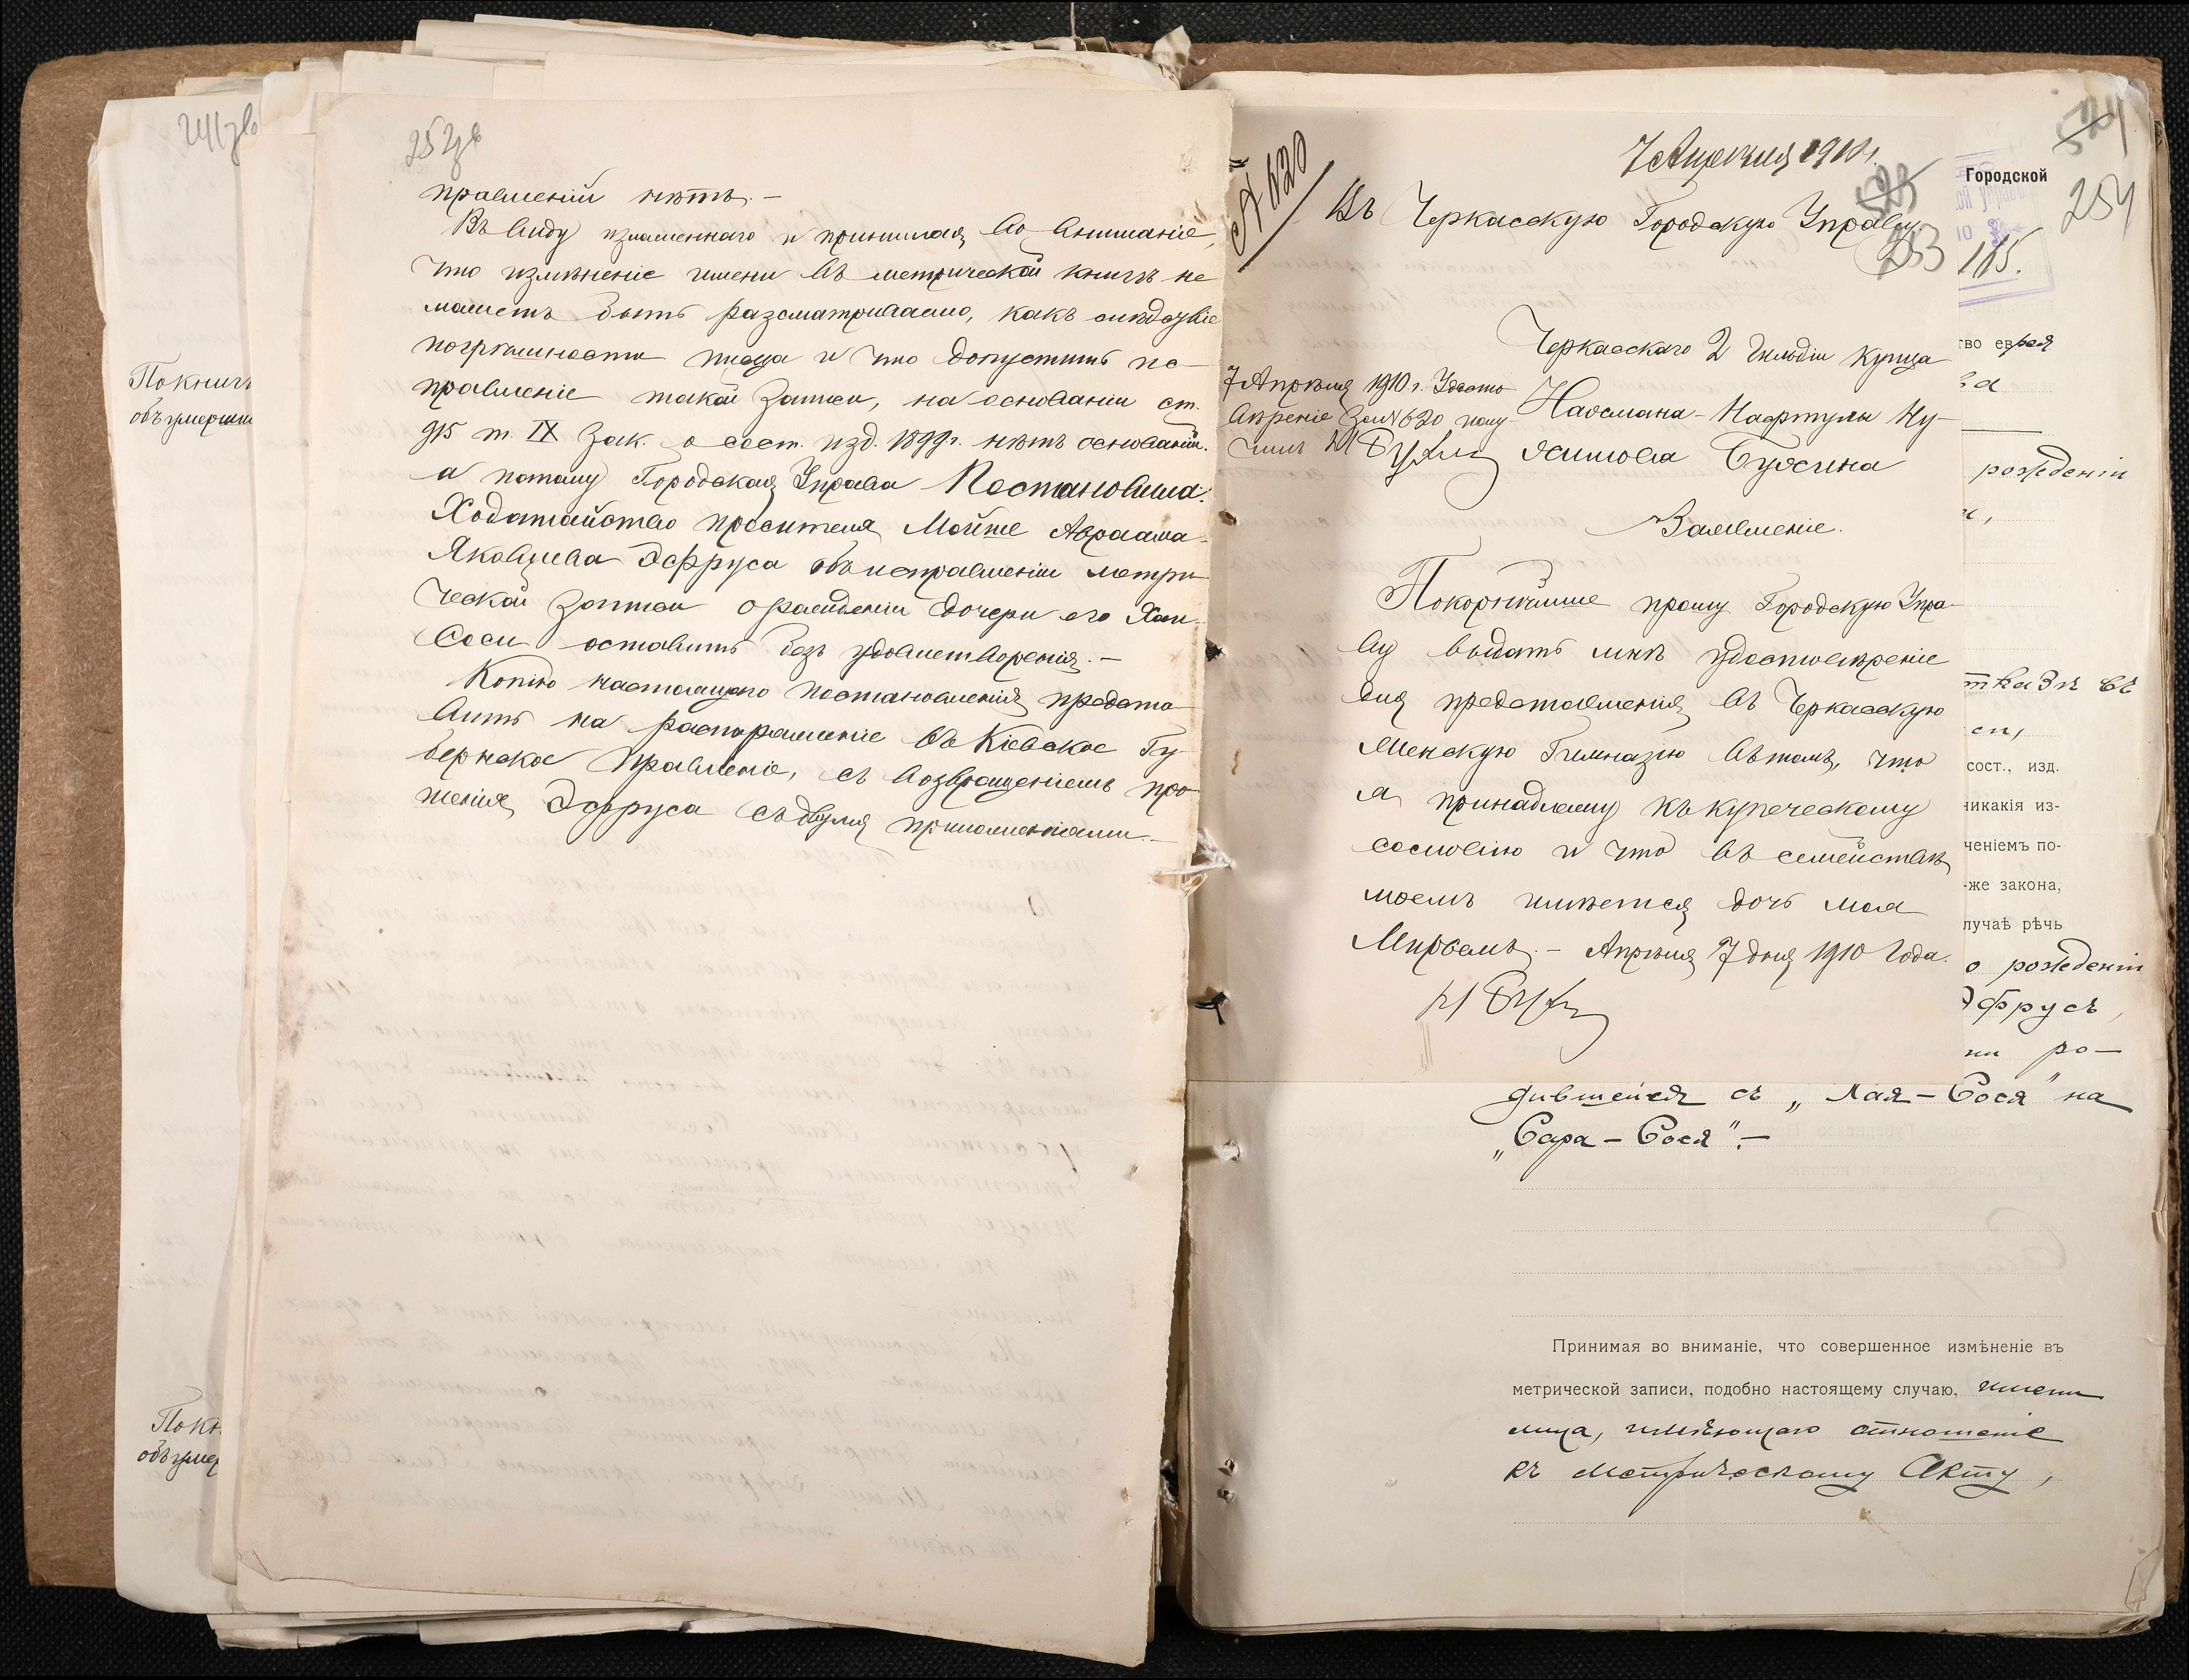 252 зв
правленій нѣтъ.—
Въ виду изложеннаго и принимая во вниманіе,
что измѣненіе имени въ метрической книгѣ не
можетъ быть разсматриваемо, какъ слѣдствіе
погрѣшности писца и что допустить ис-
правленіе такой записи, на основаніи ст.
915 т. IX Зак. о сост. изд. 1899 г. нѣтъ основаній.
а потому Городская Управа Постановила:
Ходатайство просителя Мойше Авраама
Яковлева Эфруса объ исправленіи метри-
ческой записи о рожденіи дочери его Хаи-
Соси оставить безъ удовлетворенія.—
Копію настоящаго постановленія предста-
вить на распоряженіе въ Кіевское Гу-
бернское Правленіе, съ возвращеніемъ про-
шенія Эфруса съ двумя приложеніями.—
241 зв
По книгѣ
объ умерши
По кн
объ умер
7 Апрѣля 1910 г.
№ 620
525
253
Въ Черкасскую Городскую Управу
Черкасскаго 2 Гильдіи купца
Нахмана-Нафтулы Ну-
химова Бухина
7 Апрѣля 1910 г. Удосто-
вѣреніе за № 620 полу-
чилъ Н Бухин
Заявленіе.
Покорнѣйше прошу Городскую Упра-
ву выдать мнѣ удостовѣреніе
для представленія въ Черкасскую
Женскую Гимназію въ томъ, что
я принадлежу къ купеческому
сословію и что въ семействѣ
моемъ имѣется дочь моя
Мирьемъ.— Апрѣля 7 дня 1910 года.
Н Бухин
524
254
Городской
185.
тво еврея
рожденіи
тказъ въ
сост., изд.
никакія из-
ченіемъ по-
-же закона,
лучаѣ рѣчь
о рожденіи
Эфрусъ,
ни ро-
дившейся съ „Хая-Сося" на
„Сара-Сося".—
Принимая во вниманіе, что совершенное измѣненіе въ
метрической записи, подобно настоящему случаю, имени
лица, имѣющаго отношеніе
къ метрическому акту,